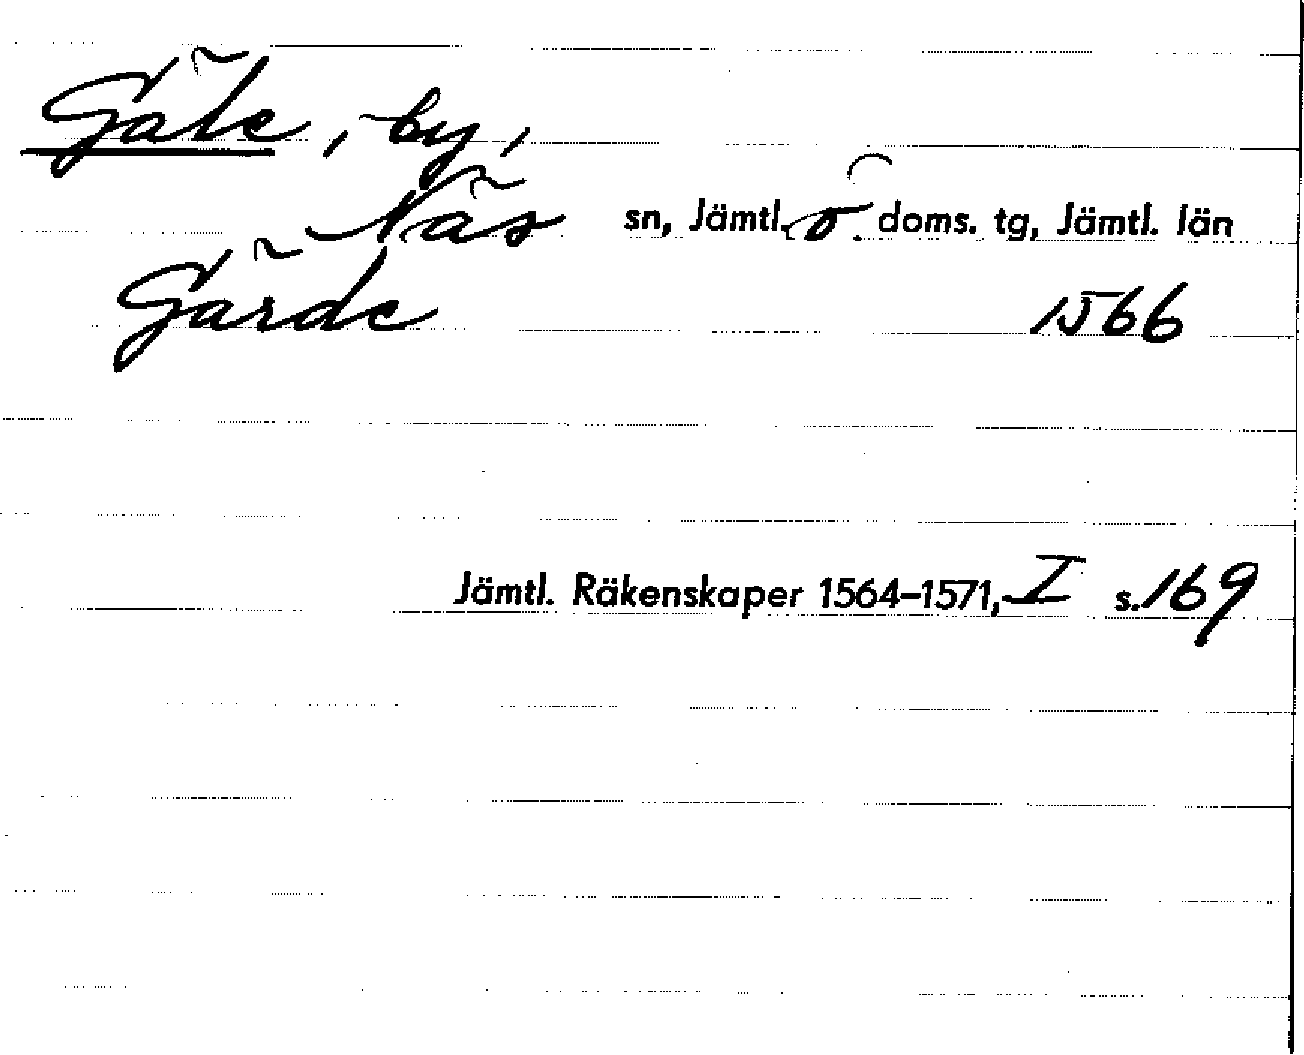 Gäle, by,
Näs sn, Jämtl. ö. doms. tg, Jämtl. län
Gärde 1566
Jämtl. Räkenskaper 1564–1571, I s. 169